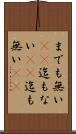 までも無い
迄もな
い迄も
無い